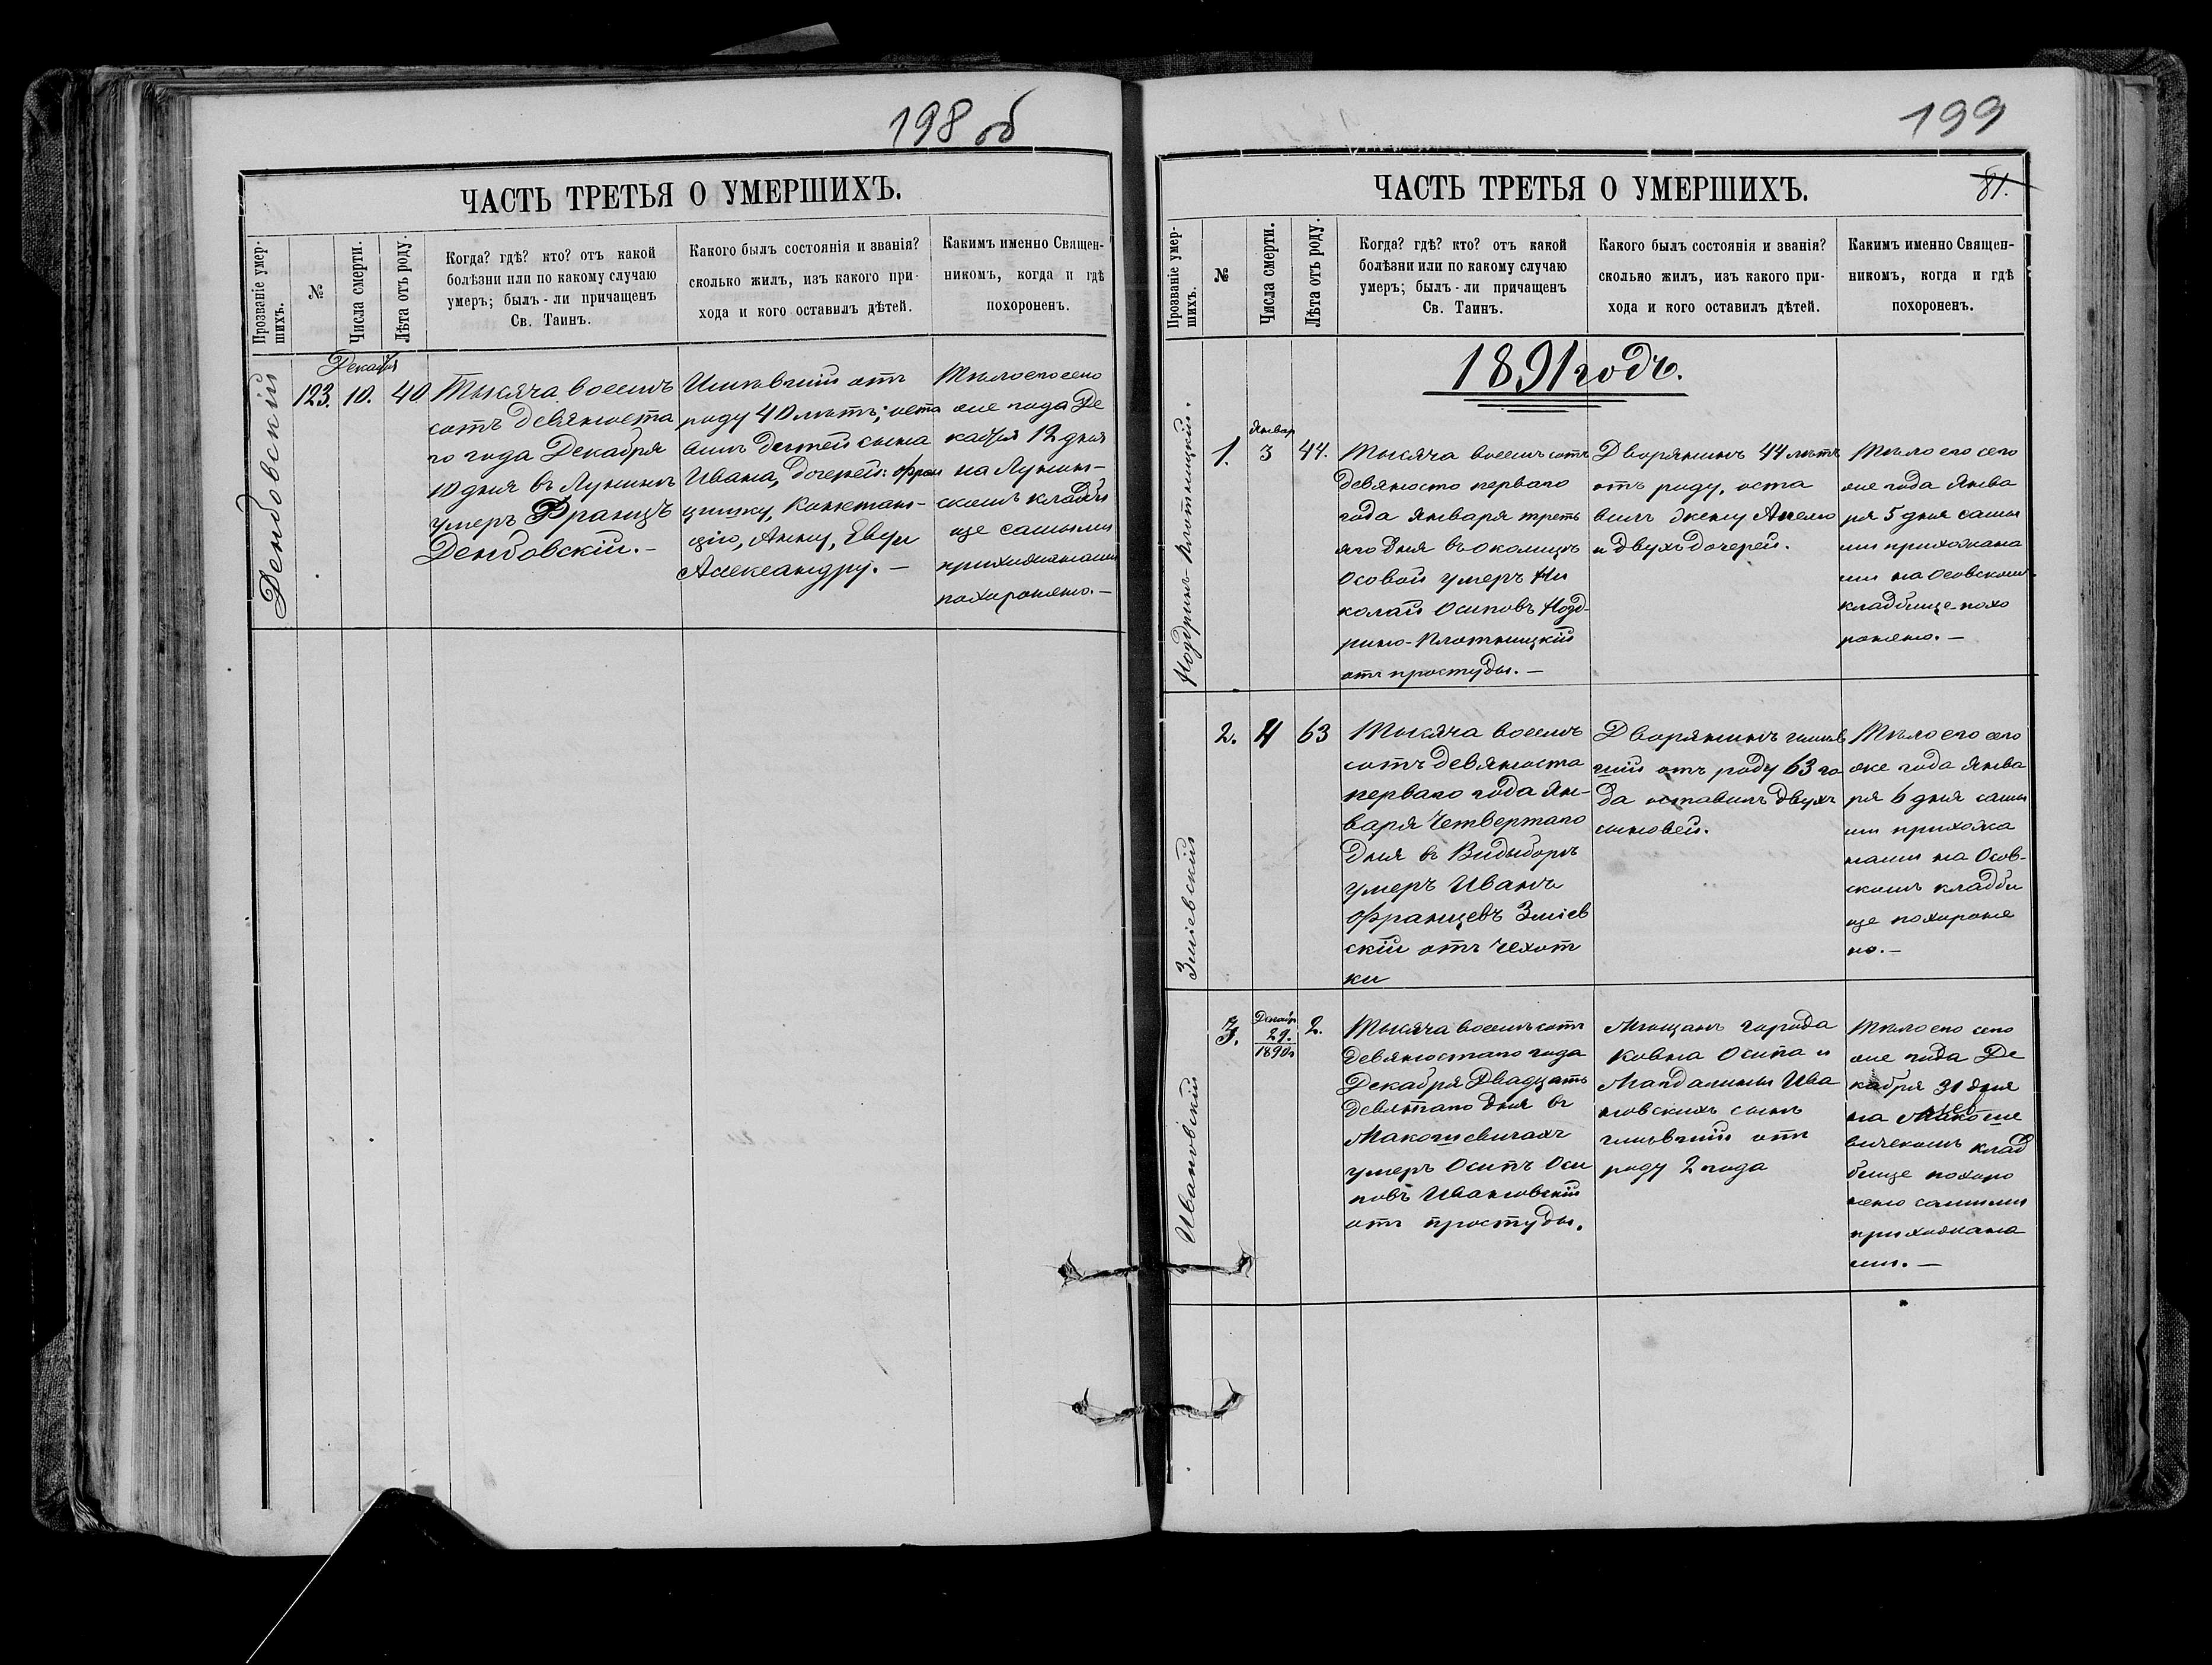 198 об
ЧАСТЬ ТРЕТЬЯ О УМЕРШИХЪ.
Прозваніе умер-
шихъ.
№
Числа смерти.
Лѣта отъ роду.
Когда? гдѣ? кто? отъ какой
болѣзни или по какому случаю
умеръ; былъ-ли причащенъ
Св. Таинъ.
Какого былъ состоянія и званія?
сколько жилъ, изъ какого при-
хода и кого оставилъ дѣтей.
Какимъ именно Священ-
никомъ, когда и гдѣ
похороненъ.
Дембовскій
Декабря
123. 10. 40
Тысяча восемъ
сотъ девяноста
го года Декабря
10 дня въ Лунинѣ
умеръ Францъ
Дембовскій.-
Имѣвшій отъ
роду 40 лѣтъ; оста
вилъ дѣтей сына
Ивана, дочерей: Фран
цишку, Констан-
цію, Анну, Еву и
Александру.-
Тѣло его сего
же года Де
кабря 12 дня
на Лунин-
скомъ кладби
ще самыми
прихожанами
похоронено.-
199
81.
ЧАСТЬ ТРЕТЬЯ О УМЕРШИХЪ.
Прозваніе умер-
шихъ.
№
Числа смерти.
Лѣта отъ роду.
Когда? гдѣ? кто? отъ какой
болѣзни или по какому случаю
умеръ; былъ-ли причащенъ
Св. Таинъ.
Какого былъ состоянія и званія?
сколько жилъ, изъ какого при-
хода и кого оставилъ дѣтей.
Какимъ именно Священ-
никомъ, когда и гдѣ
похороненъ.
1891 годъ.
Ноздринъ-Плотницкій.
Январ
1. 3 44.
Тысяча восемъ сотъ
девяносто перваго
года Января треть
яго дня въ околицѣ
Осовой умеръ Ни
колай Осиповъ Нозд-
рино-Плотницкій
отъ простуды.-
Дворянинъ 44 лѣтъ
отъ роду, оста
вилъ жену
и двухъ дочерей.
Тѣло его сего
же года Янва
ря 5 дня самы
ми прихожана
ми на Осовскомъ
кладбище похо
ронено.-
Зміевскій
2. 4 63
Тысяча восемъ
сотъ девяноста
перваго года Ян-
варя четвертаго
дня въ Видыборѣ
умеръ Иванъ
Францевъ Зміев
скій отъ чехот
ки
Дворянинъ имѣв
шій отъ роду 63 го
да оставилъ двухъ
сыновей.
Тѣло его сего
же года Янва
ря 6 дня самы
ми прихожа
нами на Осов-
скомъ кладби
ще похороне
но.-
Ивановскій
Декабр
3. 29. 2.
1890г
Тысяча восемъ сотъ
девяностаго года
Декабря Двадцать
девятаго дня въ
Макошевичахъ
умеръ Осипъ Оси
повъ Ивановскій
отъ простуды.
Мѣщанъ города
Ковна Осипа и
Магдалины Ива
новскихъ сынъ
имѣвшій отъ
роду 2 года
Тѣло его сего
же года Де
кабря 31 дня
на Макоше
вичскомъ клад
бище похоро
нено самыми
прихожана
ми.-